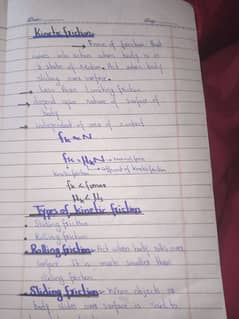 Kinetic friction
→ Force of friction that
comes into action when body is in
a state of motion. Act when body
sliding over surface.
→ Less than limiting friction
→ depend upon nature of surface of
body
→ independent of area of contact
fk ∝ N
fk = μkN → normal force
kinetic friction
fk < fsmax
μk < μs
Types of kinetic friction
• Sliding friction
• Rolling friction
Rolling friction- Act when body rolls over
surface. It is much smaller than
sliding friction
Sliding friction- When objects or
body slides over surface is said to